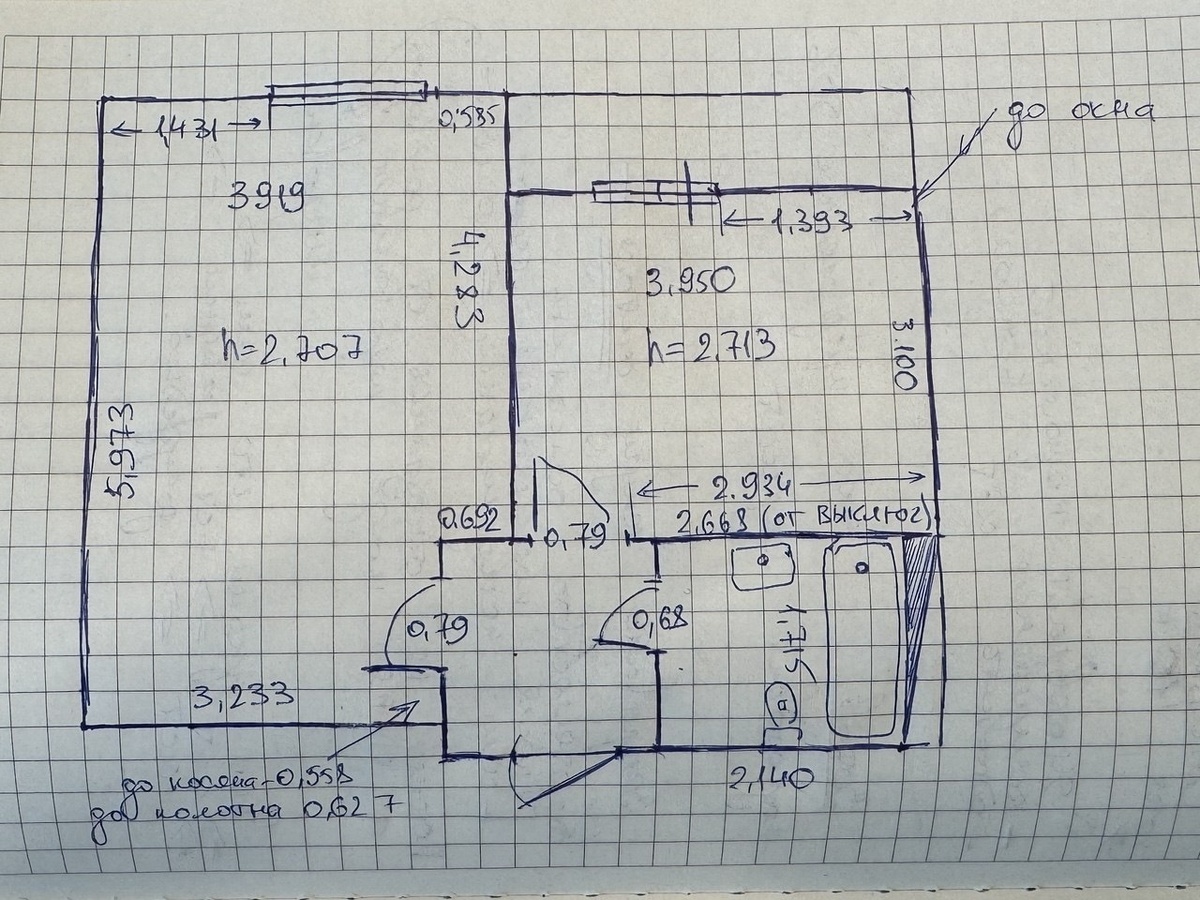 до окна
1,431
0,585
3919
1,393
4,283
3,950
h=2,707
h=2,713
3.100
5,973
2.934
0.692
0,79
2,668 (от выключ)
0,79
0,68
1,715
3,233
до косяка-0,558
до полотна 0,627
2,140